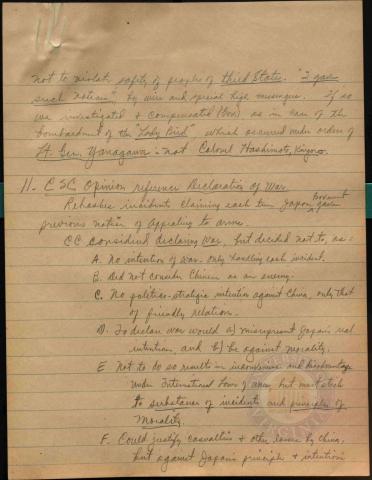 not to violate safety of peoples of third States. "I gave
such notice", by wire and special high messages. If so
we investigated & compensated as in case of the
bombardment of the "Lady Bird" which occurred under orders of
Lt. Gen. Yanagawa - not Colonel Hashimoto, Kingoro.
11. CSC Opinion reference Declaration of War.
Rehashes incidents claiming each time Japan
previous notice of appealing to arms.
CC considered declaring war, but decided not to, as:
A. No intention of war. Only handling each incident.
B. Did not consider Chinese as an enemy.
C. No politico-strategic intention against China, only that
of friendly relation.
D. To declare war would a) misrepresent Japan's real
intention, and b) be against morality.
E Not to do so results in inconvenience and disadvantage
under International Laws of war, but must stick
to substance of incidents and principles of
Morality.
F. Could justify casualties & other losses by China,
but against Japan's principles & intentions